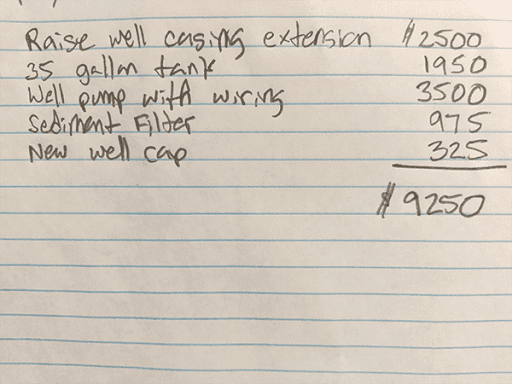 Raise well casing extension $2500
35 gallon tank 1950
Well pump with wiring 3500
Sediment Filter 975
New well cap 325
$9250